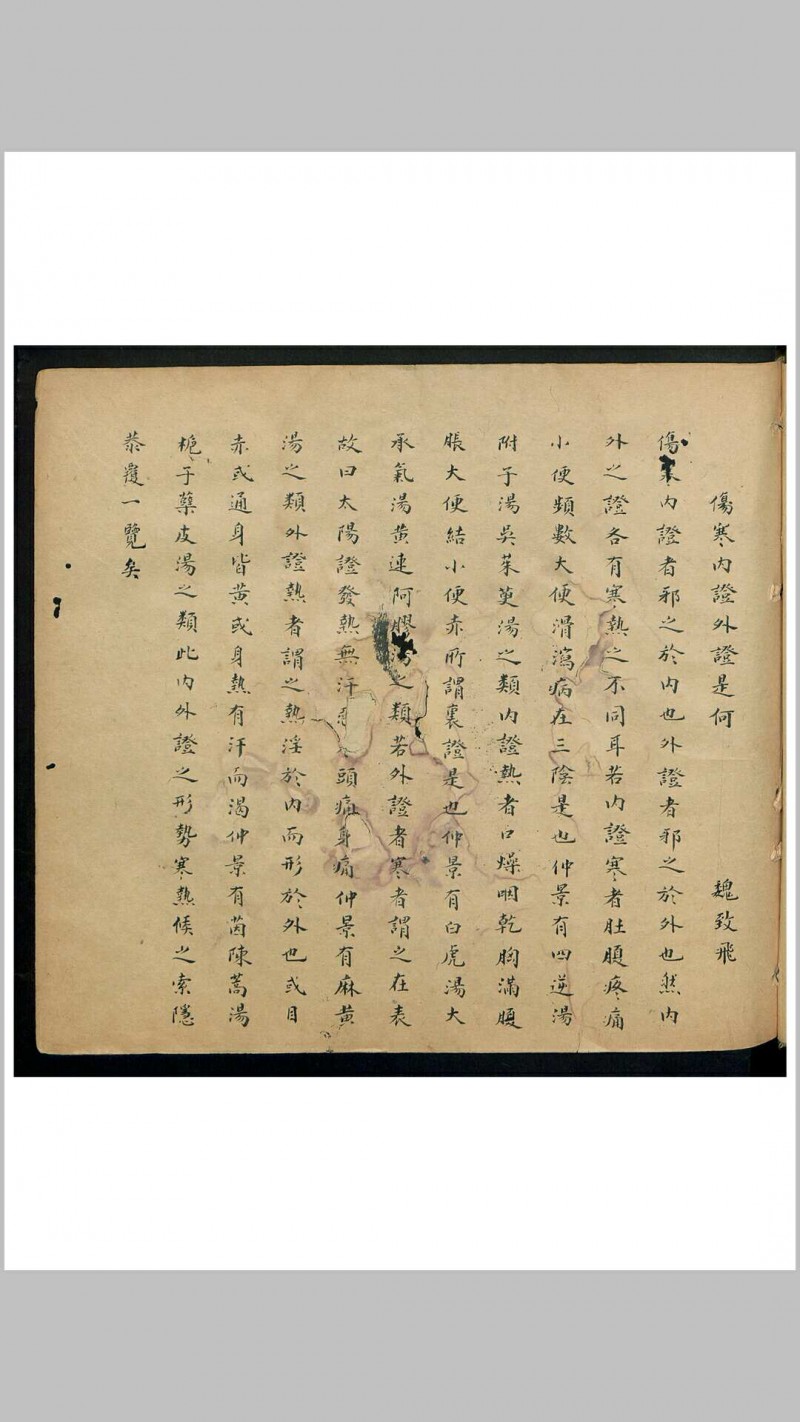 傷寒內證外證是何 魏致飛
傷寒內證者邪之於內也外證者邪之於外也然內
外之證各有寒熱之不同耳若內證寒者肚腹疼痛
小便頻數大便滑瀉病在三陰是也仲景有四逆湯
附子湯吳茱萸湯之類內證熱者口燥咽乾胸滿腹
脹大便結小便赤所謂裏證是也仲景有白虎湯大
承氣湯黃連阿膠湯之類若外證者寒者謂之在表
故曰太陽證發熱無汗頭痛身痛仲景有麻黃
湯之類外證熱者謂之熱淫於內而形於外也或目
赤或通身皆黃或身熱有汗而渴仲景有茵陳蒿湯
梔子蘗皮湯之類此內外證之形勢寒熱候之索隱
恭覆一覽矣